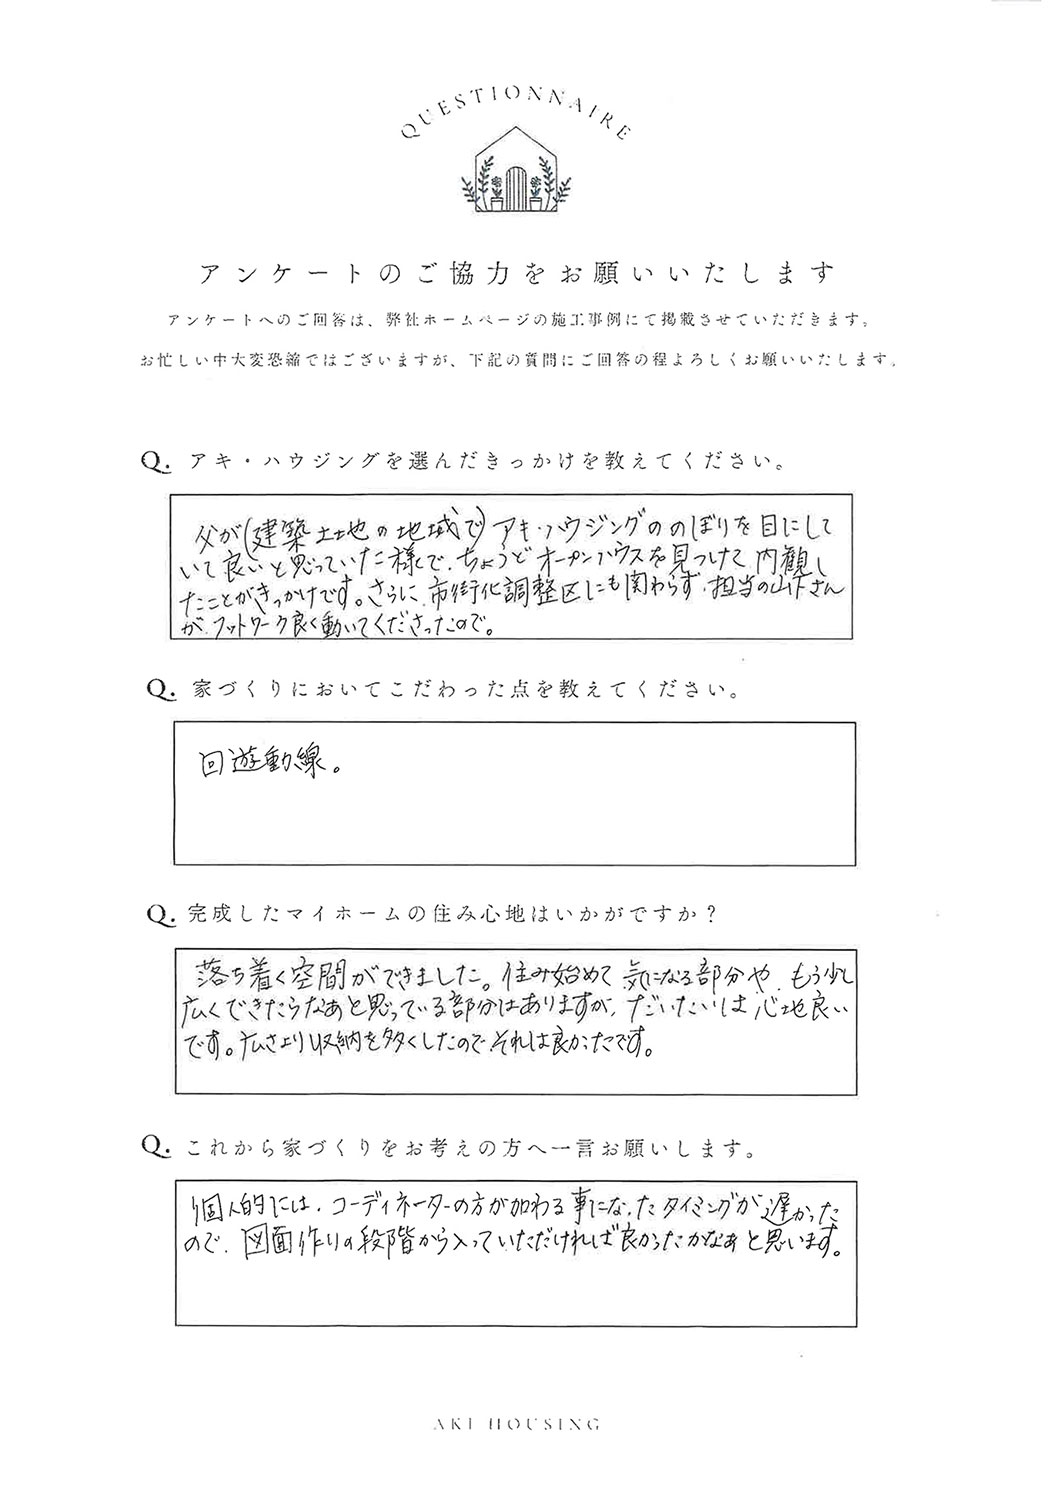 QUESTIONNAIRE
アンケートのご協力をお願いいたします
アンケートへのご回答は、弊社ホームページの施工事例にて掲載させていただきます。
お忙しい中大変恐縮ではございますが、下記の質問にご回答の程よろしくお願いいたします。
Q. アキ・ハウジングを選んだきっかけを教えてください。
父が(建築土地の地域で)アキ・ハウジングののぼりを目にして
いて良いと思っていた様で、ちょうどオープンハウスを見つけて、内観し
たことがきっかけです。さらに、市街化調整区にも関わらず、担当の山下さん
が、フットワーク良く動いてくださったので。
Q. 家づくりにおいてこだわった点を教えてください。
回遊動線。
Q. 完成したマイホームの住み心地はいかがですか？
落ち着く空間ができました。住み始めて気になる部分や、もう少し
広くできたらなぁと思っている部分はありますが、だいたいは心地良い
です。広さより収納を多くしたので、それは良かったです。
Q. これから家づくりをお考えの方へ一言お願いします。
個人的には、コーディネーターの方が加わる事になったタイミングが遅かった
ので、図面作りの段階から入っていただければ良かったかなぁと思います。
AKI HOUSING